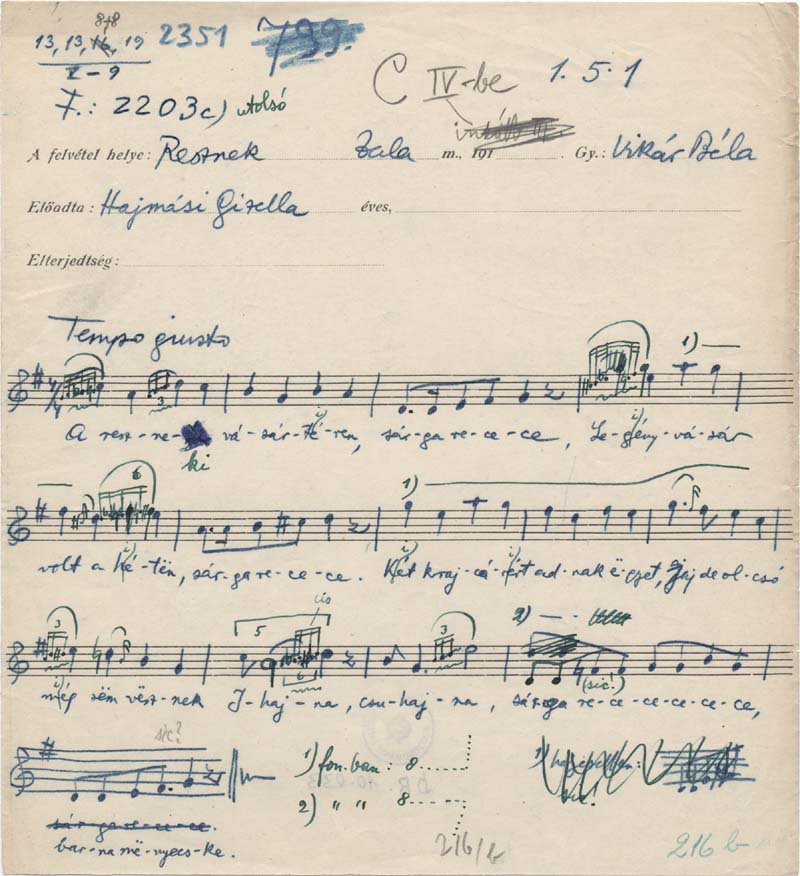 8+8
13, 13, 16, 19 2351 799.
x-9
F.: 2203c) utolsó
C IV-be 1. 5. 1
A felvétel helye: Resznek Zala m., 191 . Gy.: Vikár Béla
Előadta: Hajmási Gizella éves,
Elterjedtség:
Tempo giusto
1)
3
A resz-ne- vá-sár-té-ren, sár-ga re-ce-ce, Le-gény-vá-sár
ki
6
1)
volt a hé-tën, sár-ga re-ce-ce. Két kraj-cá-ré't ad-nak ë-gyet, jaj de ol-csó
cis
3 5 3 2)
6 (sic!)
még sëm vësz-nek I-haj-na, csu-haj-na, sár-ga re-ce-ce-ce-ce-ce,
sic?
1) fon.ban: 8
2) " " 8
sic!
sár-ga re-ce-ce.
bar-na më-nyecs-ke.
216/b
216 b